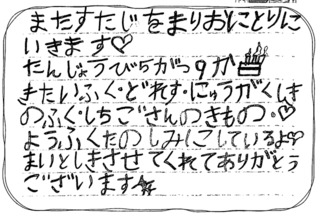 またすたじをまりおにとりに
いきます♡
たんじょうびらがつ9か
きたいふく・どれす・にゅうがくしき
のふく・しちごさんのきもの・♡
ようふくたのしみにしているよ♡
まいとしきさせてくれてありがとう
ございます☆